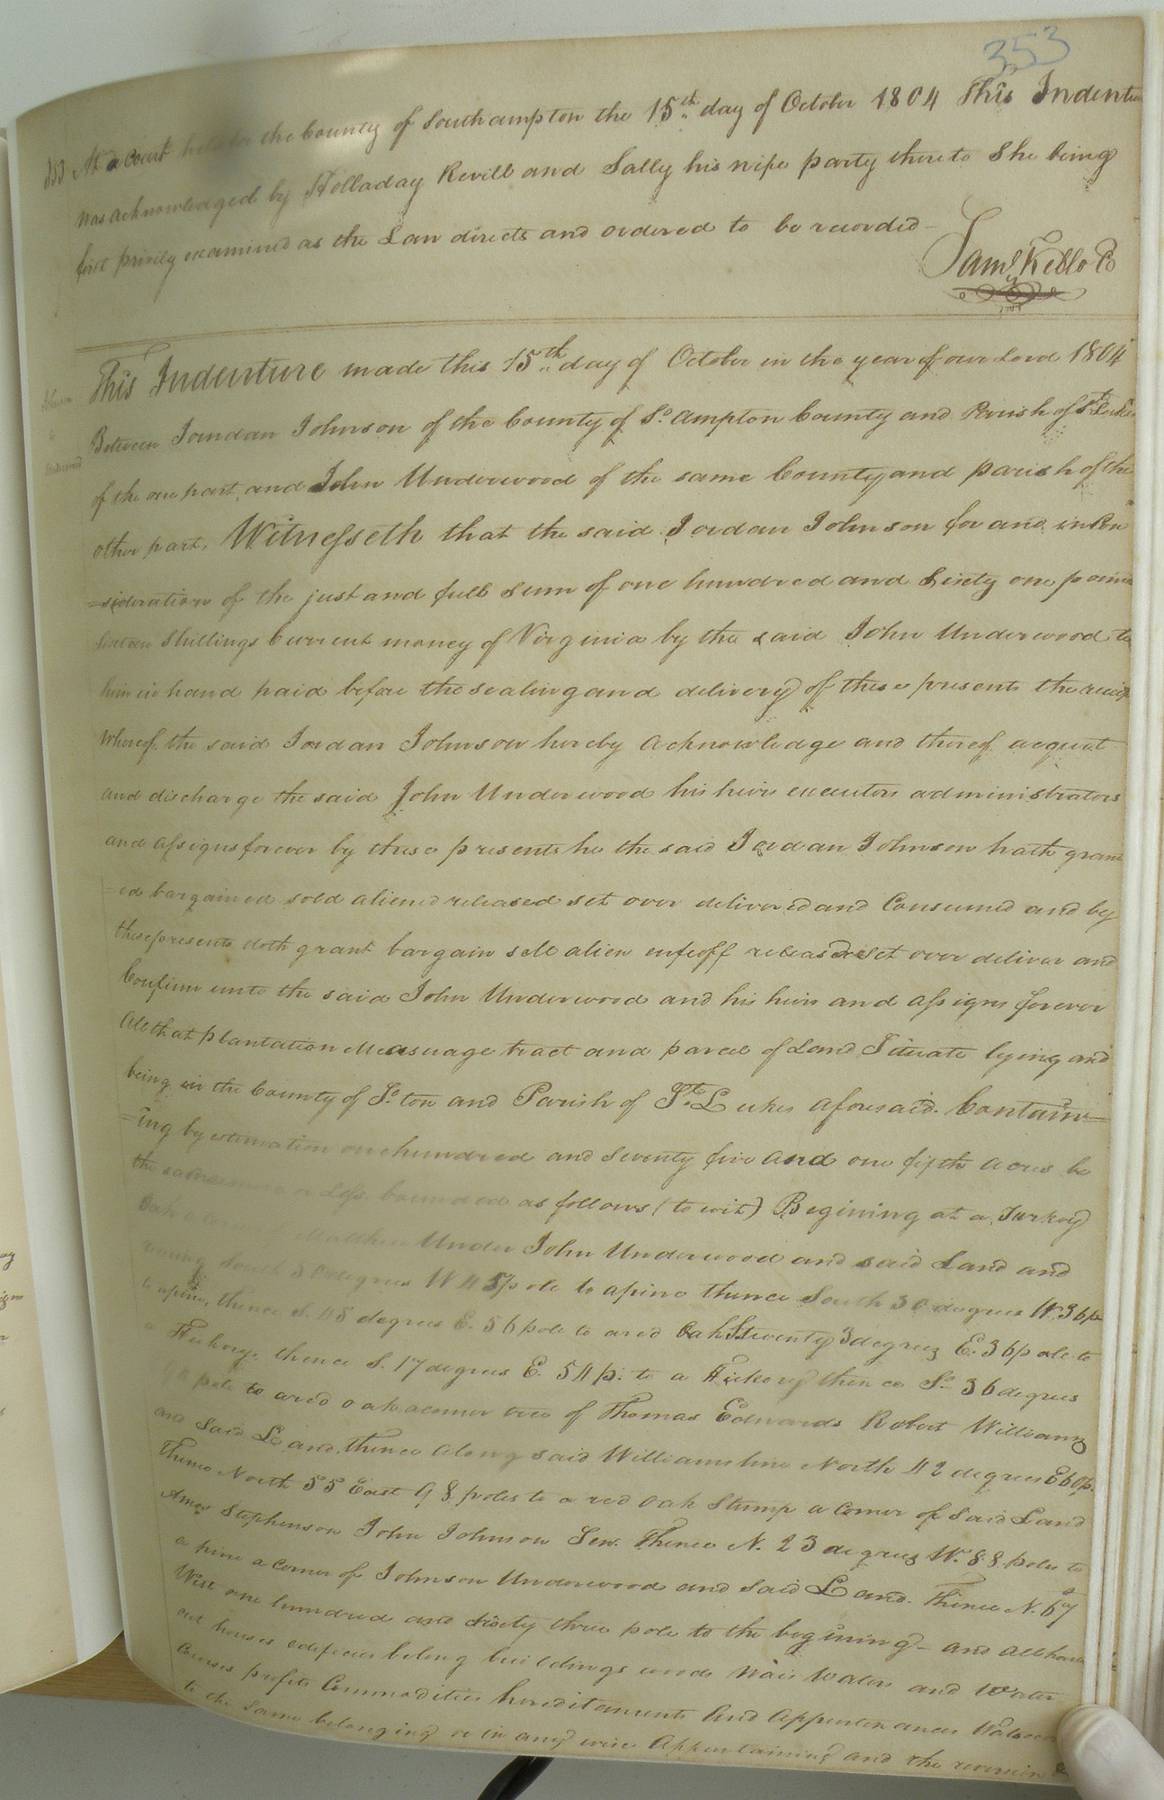 353
At a Court held for the County of Southampton the 15th day of October 1804 This Indentu
was acknowledged by Holladay Revill and Sally his wife party thereto She being
first privily examined as the Law directs and ordered to be recorded
Saml Kello C
This Indenture made this 15th day of October in the year of our Lord 1804
Between Jourdan Johnson of the County of So. ampton County and Parish of St Lukes
of the one part, and John Underwood of the same County and parish of the
other part, Witnesseth that the said Jordan Johnson for and in Con
=sideration of the just and full Sum of one hundred and Sixty one poun
Shillings Current money of Virginia by the said John Underwood to
him in hand paid before the sealing and delivery of these presents the receip
whereof the said Jordan Johnson hereby acknowledge and thereof acquat
and discharge the said John Underwood his heirs executors administrators
and assigns forever by these presents he the said Jordan Johnson hath grant
=ed bargained sold aliened released set over delivered and Consumed and by
these presents doth grant bargain sell alien enfeoff release set over deliver and
Confirm unto the said John Underwood and his heirs and assigns forever
All that plantation Measuage tract and parcel of Land Situate lying and
being in the County of So. ton and Parish of St. Lukes aforesaid. Contain=
=ing by estimation one hundred and Seventy five and one fifth acres be
the same more or Less bounded as follows (to wit) Begining at a Turkey
Oak a Corner Matthew Under John Underwood and said Land and
runing South 30 degrees W 45 pole to a pine thence South 30 degrees W. 36 p
to a pine, thence S. 48 degrees E. 56 pole to a red Oak Seventy 3 degrees E. 36 pole to
a Hickory, thence S. 17 degrees E. 54 p. to a Hickory thence So. 36 degrees
pole to a red oak a corner tree of Thomas Edwards Robert Williams
and Said Land, thence along said Williams line North 42 degrees E 60 p.
Thence North 55 East 98 poles to a red oak Stump a corner of Said Land
Amos Stephenson John Johnson Sen. Thence N. 23 degrees W. 88 poles to
a pine a corner of Johnson Underwood and Said Land. Thence N. 67
West one hundred and sixty three pole to the begining - and all hou
out houses edifices belong buildings woods Ways Waters and Water
Courses profits Commodities hereditaments And Appurtenances
to the same belonging or in any wise Appertaining and the reversion